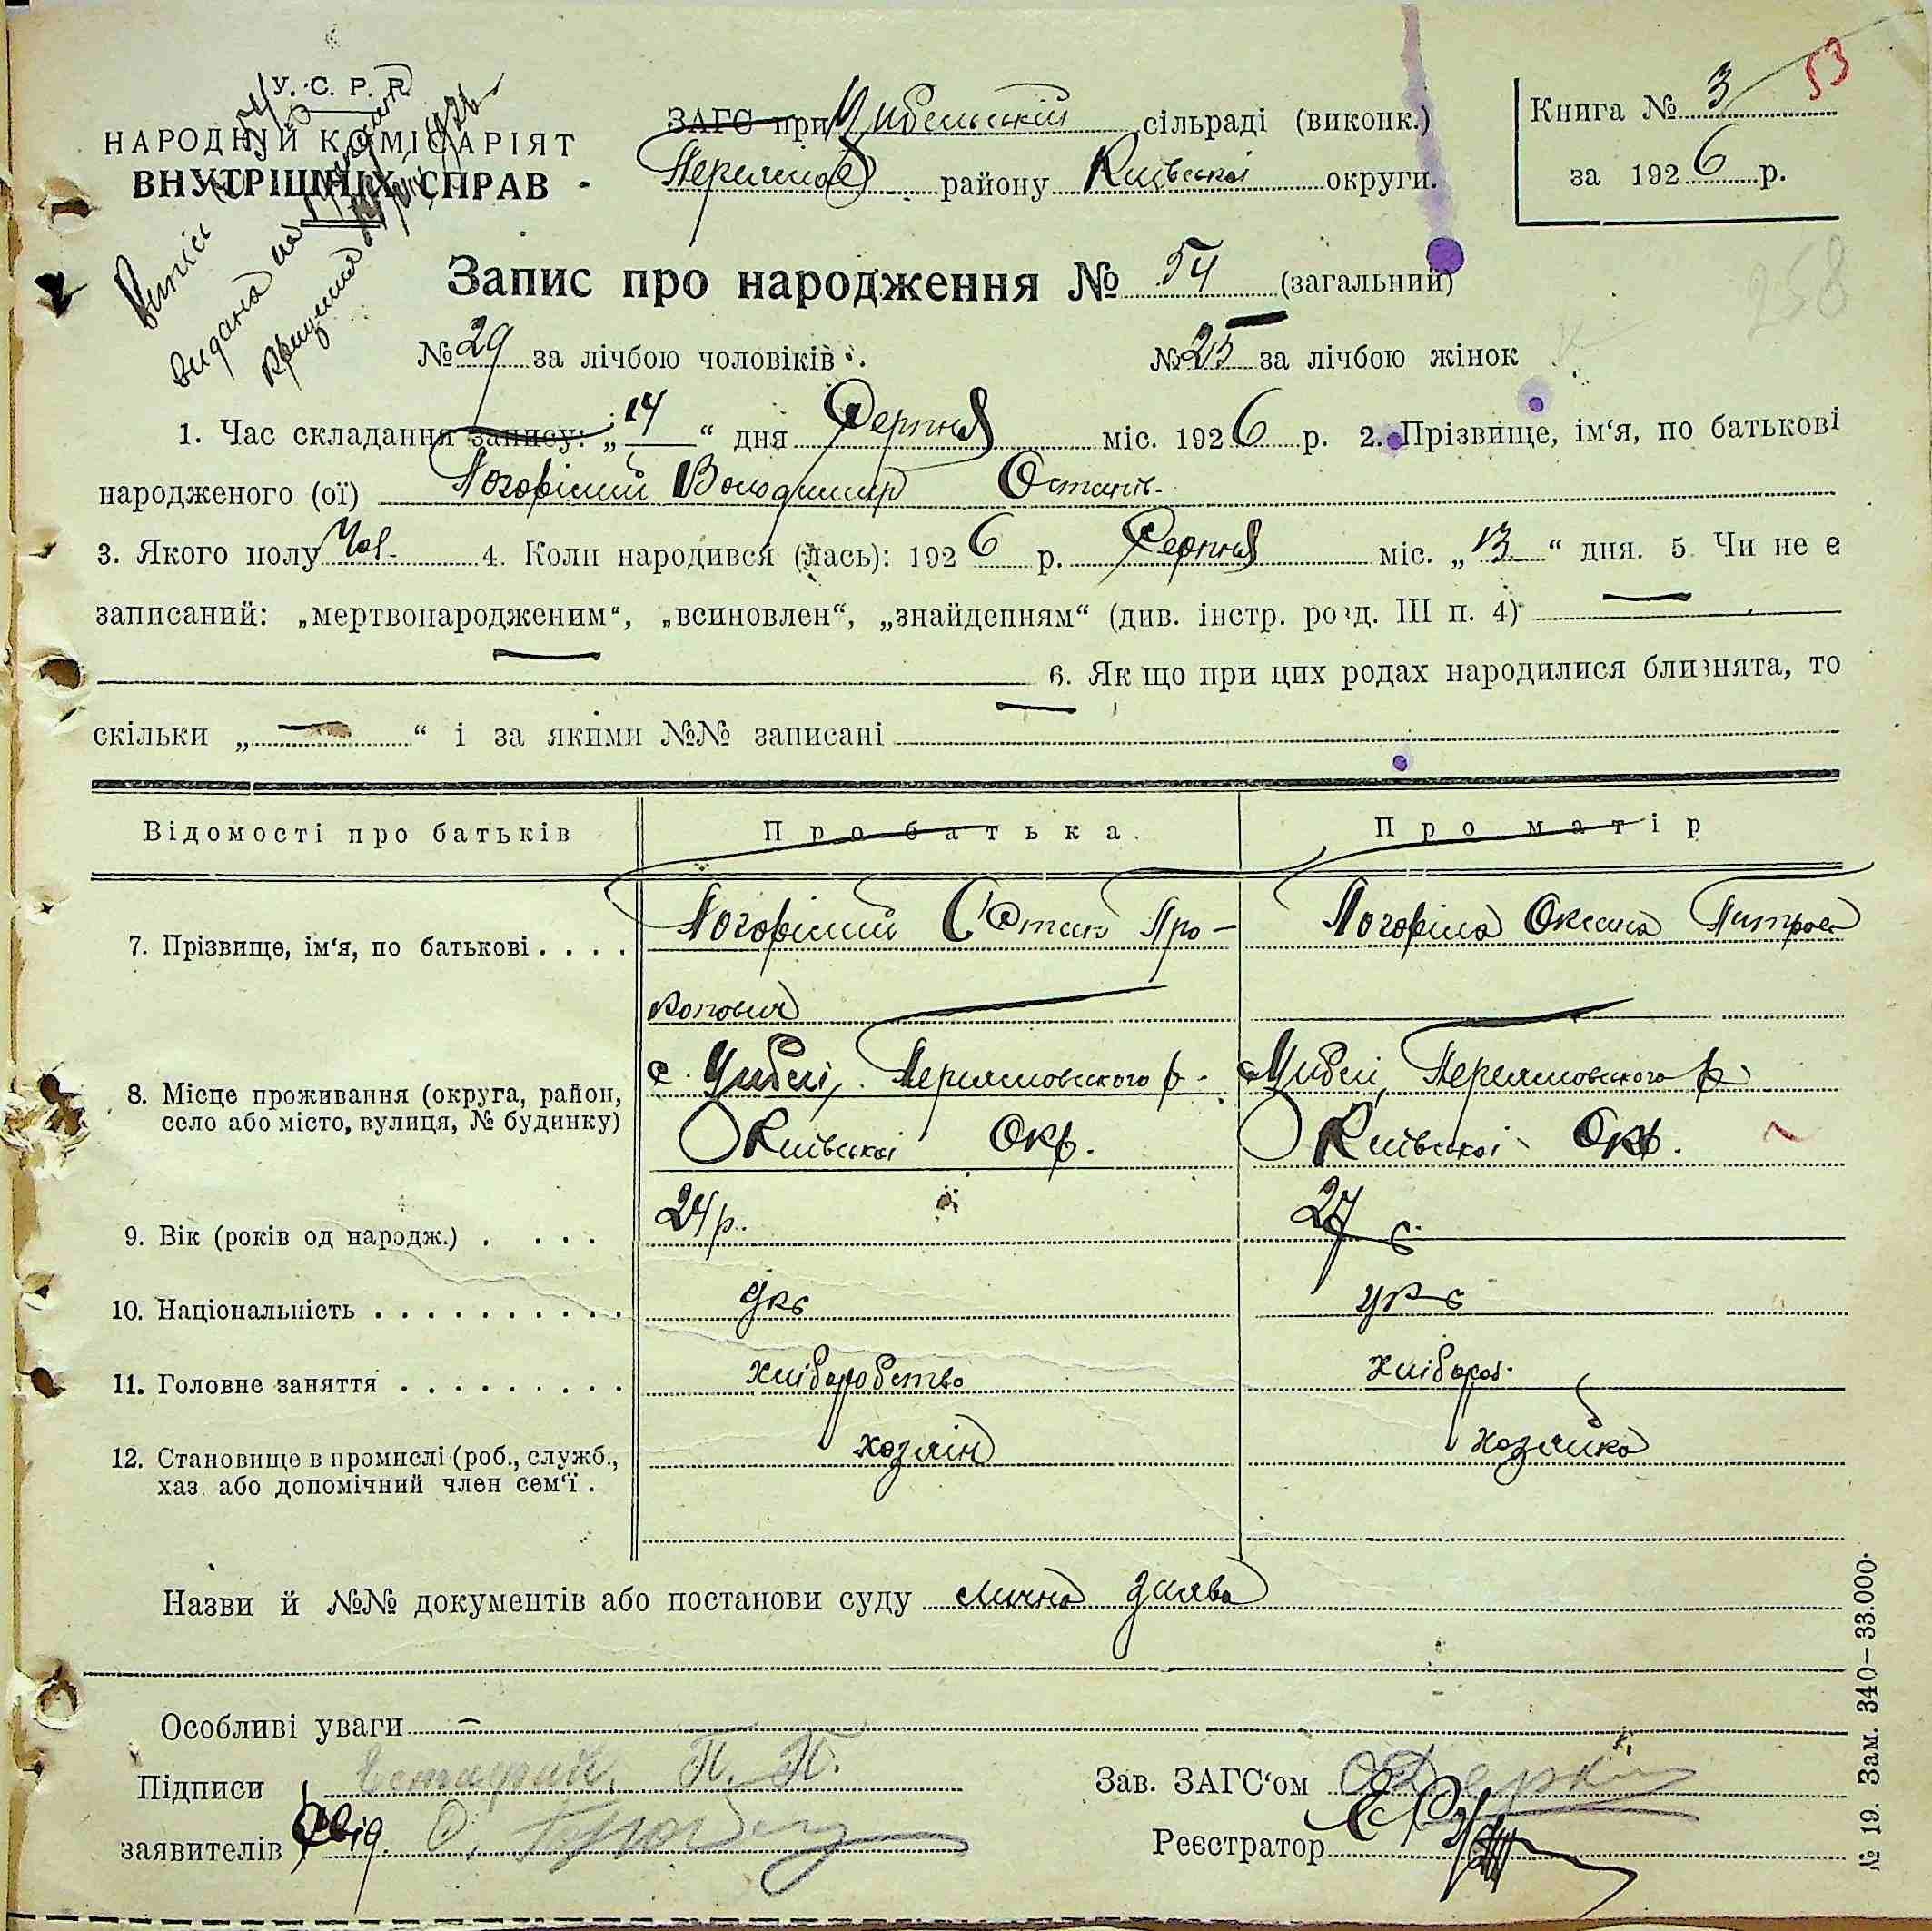 У. С. Р. Р.
НАРОДНИЙ КОМІСАРІЯТ
ВНУТРІШНІХ СПРАВ
Випис № 54
видана на
ЗАГС при Цибельській сільраді (виконк.)
Переяслов району Київської округи.
Книга № 3
за 1926 р.
53
258
Запис про народження № 54 (загальний)
№ 29 за лічбою чоловіків. № 25 за лічбою жінок
1. Час складання запису: „14“ дня Серпня міс. 1926 р. 2. Прізвище, ім‘я, по батькові
народженого (ої) Погорілий Володимир Остапів.
3. Якого полу Чол. 4. Коли народився (лась): 1926 р. Серпня міс. „13“ дня. 5. Чи не є
записаний: „мертвонародженим“, „всиновлен“, „знайденням“ (див. інстр. розд. III п. 4) —
— 6. Як що при цих родах народилися близнята, то
скільки „—“ і за якими №№ записані —
Відомості про батьків Про батька. Про матір
7. Прізвище, ім‘я, по батькові . . . . Погорілий Остап Про- Погоріла Оксана Питров
копович
8. Місце проживання (округа, район, с. Цибелі, Переясловського р. с. Цибелі, Переясловського р.
село або місто, вулиця, № будинку) Київської Окр. Київської Окр.
9. Вік (років од народж.) . . . . 24 р. 27 р.
10. Національність . . . . . . . . . . укр укр
11. Головне заняття . . . . . . . . . . хліборобство хлібороб.
12. Становище в промислі (роб., служб., хозяін хозяйка
хаз. або допомічний член сем‘ї .
Назви й №№ документів або постанови суду лична заява
Особливі уваги —
Підписи П. П. Зав. ЗАГС‘ом
заявителів Свід. О. Реєстратор
№ 19. Зам. 340—33.000.